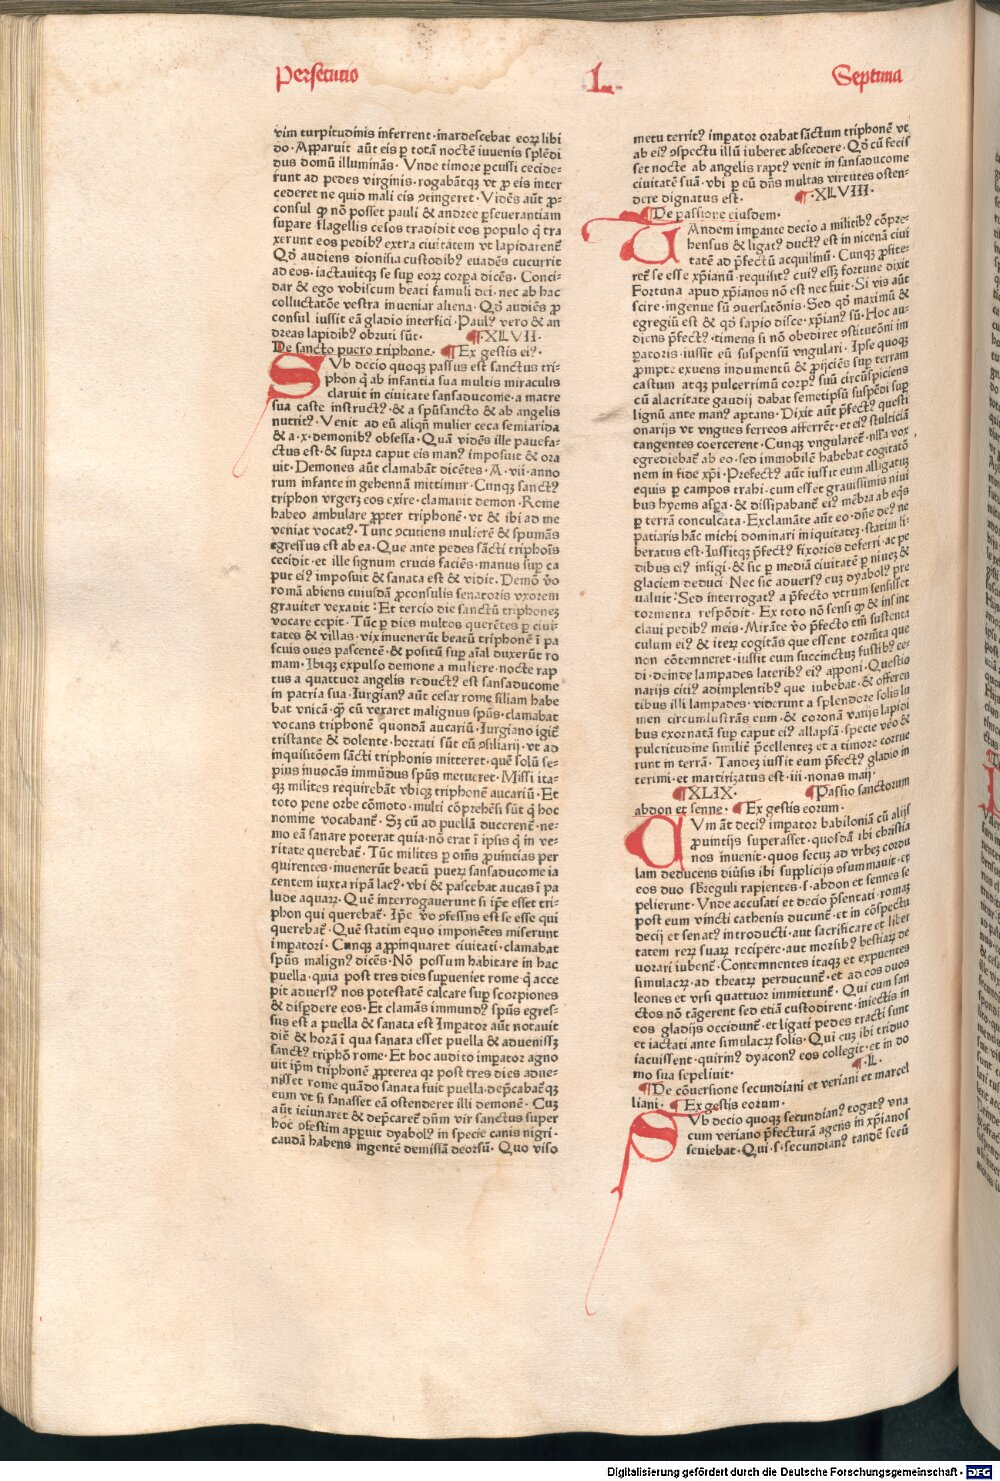 Persecutio
L
Septima
vim turpitudinis inferrent·inardescebat eoꝝ libi
do·Apparuit aūt eis ꝑ totā noctē iuuenis splēdi
dus domū illuminās· Vnde timore ꝑcussi cecide-
runt ad pedes virginis·rogabātqꝫ vt ꝓ eis inter
cederet ne quid mali eis ꝯtingeret·Vidēs aūt ꝓ-
consul ꝙ nō posset pauli & andree ꝑseuerantiam
supare flagellis cesos tradidit eos populo q̄ tra
xerunt eos pedibꝰ extra ciuitatem vt lapidarent
Qđ audiens dionisia custodibꝰ euadēs cucurrit
ad eos·iactauitqꝫ se sup eoꝝ corpa dicēs· Conci-
dar & ego vobiscum beati famuli dei·nec ab hac
colluctatōe vestra inueniar aliena·Qđ audiēs ꝓ
consul iussit eā gladio interfici·Paulꝰ vero & an
dreas lapidibꝰ obruti sūt· ¶·XLVII·
De sancto puero triphone· ¶Ex gestis eiꝰ·
SVb decio quoqꝫ passus est sanctus tri-
phon q̄ ab infantia sua multis miraculis
claruit in ciuitate sansaducome·a matre
sua caste instructꝰ·& a spūsancto & ab angelis
nutritꝰ·Venit ad eū aliqn̄ mulier ceca semiarida
& a·x·demonibꝰ obsessa·Quā vidēs ille pauefa-
ctus est·& supra caput eis manꝰ imposuit & ora
uit·Demones aūt clamabāt dicētes·A·vii·anno
rum infante in gehennā mittimur·Cunqꝫ sanctꝰ
triphon vrgeꝝ eos exire·clamauit demon·Rome
habeo ambulare ꝓpter triphonē·vt & ibi ad me
veniat vocatꝰ·Tunc ꝯcutiens mulierē & spumās
egressus est ab ea·Que ante pedes sācti triphōis
cecidit·et ille signum crucis faciēs·manus sup ca
put eiꝰ imposuit & sanata est & vidit·Demō v̄o
romā abiens cuiusdā ꝓconsulis senatoris vxorem
grauiter vexauit:Et tercio die sanctū triphoneꝫ
vocare cepit·Tūc ꝑ dies multos querētes ꝑ ciui
tates & villas·vix inuenerūt beatū triphonē ī pa
scuis oues pascentē·& positū sup aīal duxerūt ro
mam·Ibiqꝫ expulso demone a muliere·nocte rap
tus a quattuor angelis reductꝰ est sansaducome
in patria sua·Iurgianꝰ aūt cesar rome filiam habe
bat vnicā·ꝙ cū vexaret malignus spūs·clamabat
vocans triphonē quondā aucariū·Iurgiano igiť
tristante & dolente·hortati sūt eū ꝯsiliarij·vt ad
inquisitōem sācti triphonis mitteret·quē solū se-
pius inuocās immūdus spūs metueret·Missi ita-
qꝫ milites requirebāt vbiqꝫ triphonē aucariū·Et
toto pene orbe cōmoto·multi cōprehēsi sūt q̄ hoc
nomine vocabant̄·Sꝫ cū ad puellā ducerent̄·ne-
mo eā sanare poterat quia·nō erat ī ipsis q̄ in ve-
ritate querebat̄·Tūc milites ꝑ om̄s ꝓuintias per
quirentes·inuenerūt beatū pueꝝ sansaducome ia
centem iuxta ripā lacꝰ·vbi & pascebat aucas ī pa
lude aquaꝝ·Quē interrogauerunt si ip̄e esset tri-
phon qui querebat̄·Ip̄e v̄o ꝯfessus est se esse qui
querebat̄·Quē statim equo imponētes miserunt
impatori·Cunqꝫ aꝓpinquaret ciuitati·clamabat
spūs malignꝰ dicēs·Nō possum habitare in hac
puella·quia post tres dies supueniet rome q̄ acce
pit aduersꝰ nos potestatē calcare sup scorpiones
& disꝑdere eos·Et clamās immundꝰ spūs egres-
sus est a puella & sanata est Impator aūt notauit
diē & horā ī qua sanata esset puella & adueniss̄ꝫ
sanctꝰ triphō rome·Et hoc audito impator agno
uit ip̄m triphonē ꝓpterea qꝛ post tres dies adue-
nisset rome quādo sanata fuit puella·dep̄cabat̄qꝫ
eum vt si sanasset eā ostenderet illi demonē·Cuꝫ
aūt ieiunaret & dep̄caret̄ dn̄m vir sanctus super
hoc ꝯfestim apparuit dyabolꝰ in specie canis nigri·
caudā habens ingentē demissā deorsū·Quo viso
metu territꝰ impator orabat sāctum triphonē vt
ab eiꝰ ꝯspectu illū iuberet abscedere·Qđ cū fecis
set nocte ab angelis raptꝰ venit in sansaducome
ciuitatē suā·vbi ꝑ eū dn̄s multas virtutes osten-
dere dignatus est· ¶·XLVIII·
¶De passione eiusdem·
TAndem impante decio a militibꝰ cōpre-
hensus & ligatꝰ ductꝰ est in nicenā ciui
tatē ad p̄fectū acquilinū·Cunqꝫ ꝓfite-
ret̄ se esse xp̄ianū·requisitꝰ cuiꝰ ess̄ꝫ fortune dixit
Fortuna apud xp̄ianos nō est nec fuit·Si vis aūt
scire·ingenue sū ꝯuersatōnis·Sed qđ maximū &
egregiū est & qđ sapio disce·xp̄ianꝰ sū·Hoc au-
diens p̄fectꝰ·timens si nō obediret ꝯstitutōni im
patoris·iussit eū suspensū vngulari·Ipse quoqꝫ
ꝓmpte exuens indumentū & ꝓijciēs sup terram
castum atqꝫ pulcerrimū corpꝰ suū circūspiciens
cū alacritate gaudij dabat semetipsū suspēdi sup
lignū ante manꝰ aptans·Dixit aūt p̄fectꝰ questi
onarijs vt vngues ferreos afferrēt·et eiꝰ stulticiā
tangentes coercerent·Cunqꝫ vngularet̄·nlla vox
egrediebat̄ ab eo·sed immobilē habebat cogitatō
nem in fide xp̄i·Prefectꝰ aūt iussit eum alligatuꝫ
equis ꝑ campos trahi·cum esset grauissimis niui
bus hyems aspa·& dissipabant̄ eiꝰ mēbra ab eqs
ꝑ terrā conculcata·Exclamāte aūt eo·dn̄e deꝰ ne
patiaris hāc michi dominari iniquitateꝫ·statim li-
beratus est·Iussitqꝫ p̄fectꝰ fixorios deferri·ac pe
dibus eiꝰ infigi·& sic ꝑ mediā ciuitatē ꝑ niueꝫ &
glaciem deduci·Nec sic aduersꝰ euꝫ dyabolꝰ pre
ualuit:Sed interrogatꝰ a p̄fecto vtrum sensisset
tormenta respōdit·Ex toto nō sensi ꝙ & infint
claui pedibꝰ meis·Mirāte v̄o p̄fecto tm̄ sustenta
culum eiꝰ & iteꝝ cogitās que essent torm̄ta que
non cōtemneret·iussit eum succinctuꝫ fustibꝰ ce-
di·deinde lampades lateribꝰ eiꝰ apponi·Questio
narijs citiꝰ adimplentibꝰ que iubebat·& offeren
tibus illi lampades·viderunt a splendore solis lu
men circumlustrās eum·& coronā varijs lapidi
bus exornatā sup caput eiꝰ allapsā·specie v̄o &
pulcritudine similit̄ p̄cellenteꝫ et a timore corrue
runt in terrā·Tandeꝫ iussit eum p̄fectꝰ gladio in
terimi·et martirizatus est·iii·nonas maij·
¶XLIX· ¶Passio sanctorum
abdon et senne·¶Ex gestis eorum·
CVm āt deciꝰ impator babiloniā cū alijs
ꝓuintijs superasset·quosdā ibi christia
nos inuenit·quos secuꝫ ad vrbeꝫ cordu
lam deducens diūsis ibi supplicijs ꝯsummauit·et
eos duo sbreguli rapientes·s·abdon et sennes se
pelierunt·Vnde accusati et decio p̄sentati·romaꝫ
post eum vincti cathenis ducunt̄·et in cōspectu
decij et senatꝰ introducti·aut sacrificare et liber
tatem reꝝ suaꝝ recipere·aut morsibꝰ bestiaꝝ de
uorari iubent̄·Contemnentes itaqꝫ et expuentes
simulacꝝ·ad theatꝝ perducunt̄·et ad eos duos
leones et vrsi quattuor immittunt̄·Qui cum san
ctos nō tāgerent sed etiā custodirent·iniectis in
eos gladijs occidunt̄·et ligati pedes tracti sunt
et iactati ante simulacꝝ solis·Qui cuꝫ ibi triduo
iacuissent·quirinꝰ dyaconꝰ eos collegit·et in do
mo sua sepeliuit· ¶·L·
¶De cōuersione secundiani et veriani et marcel
liani· ¶Ex gestis eorum·
SVb decio quoqꝫ secundianꝰ togatꝰ vna
cum veriano p̄fecturā agens in xp̄ianos
seuiebat·Qui·s·secundianꝰ tandē secū
Digitalisierung gefördert durch die Deutsche Forschungsgemeinschaft - DFG